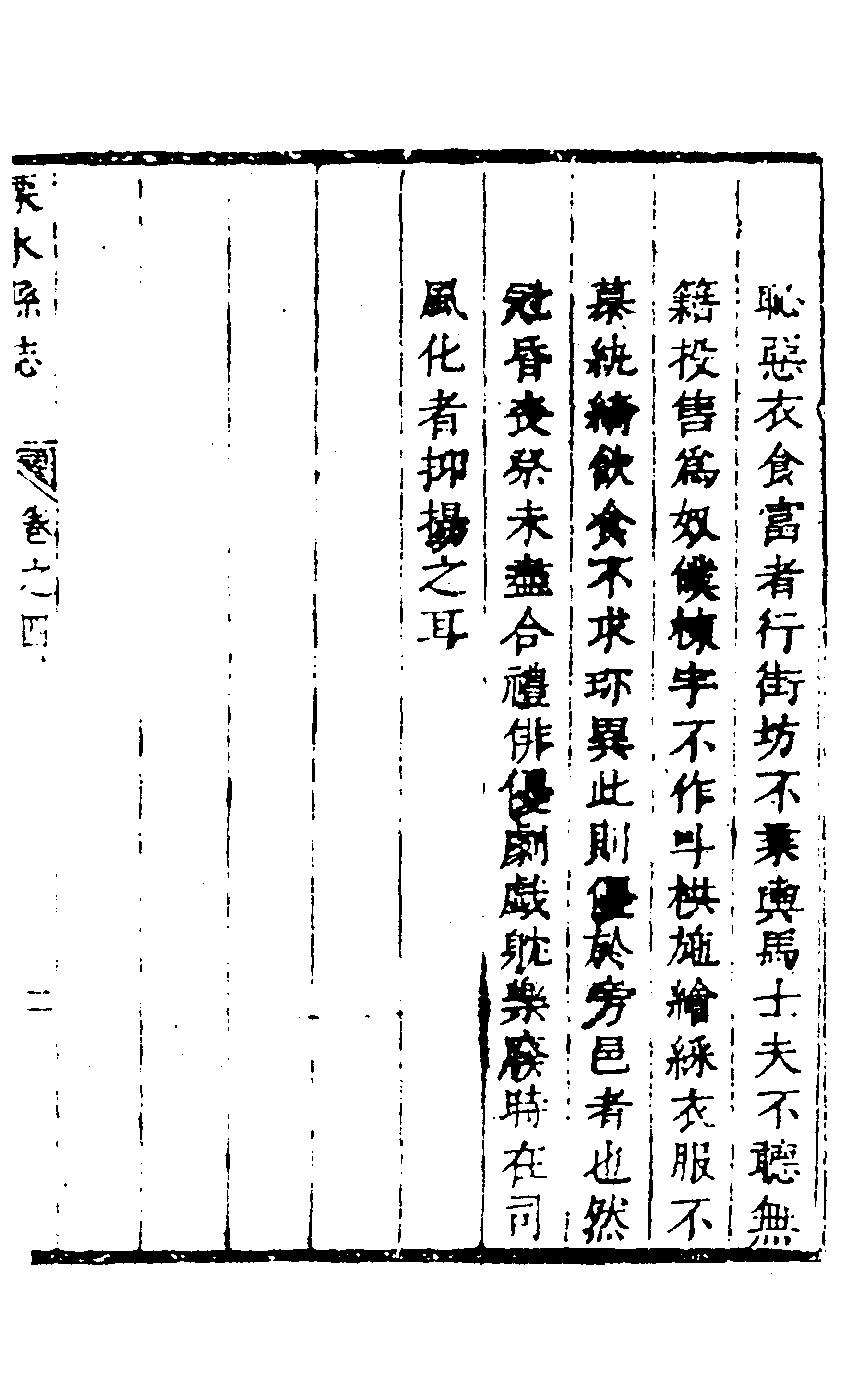 恥惡衣食富者行街坊不乗輿馬士夫不聽無
籍投售爲奴僕棟宇不作斗栱施繪綵衣服不
慕紈綺飲食不求珎異此則優於旁邑者也然
冠昏喪祭未盡合禮俳優劇戯耽樂廢時在司
風化者抑揚之耳
溧水縣志
卷之四
二